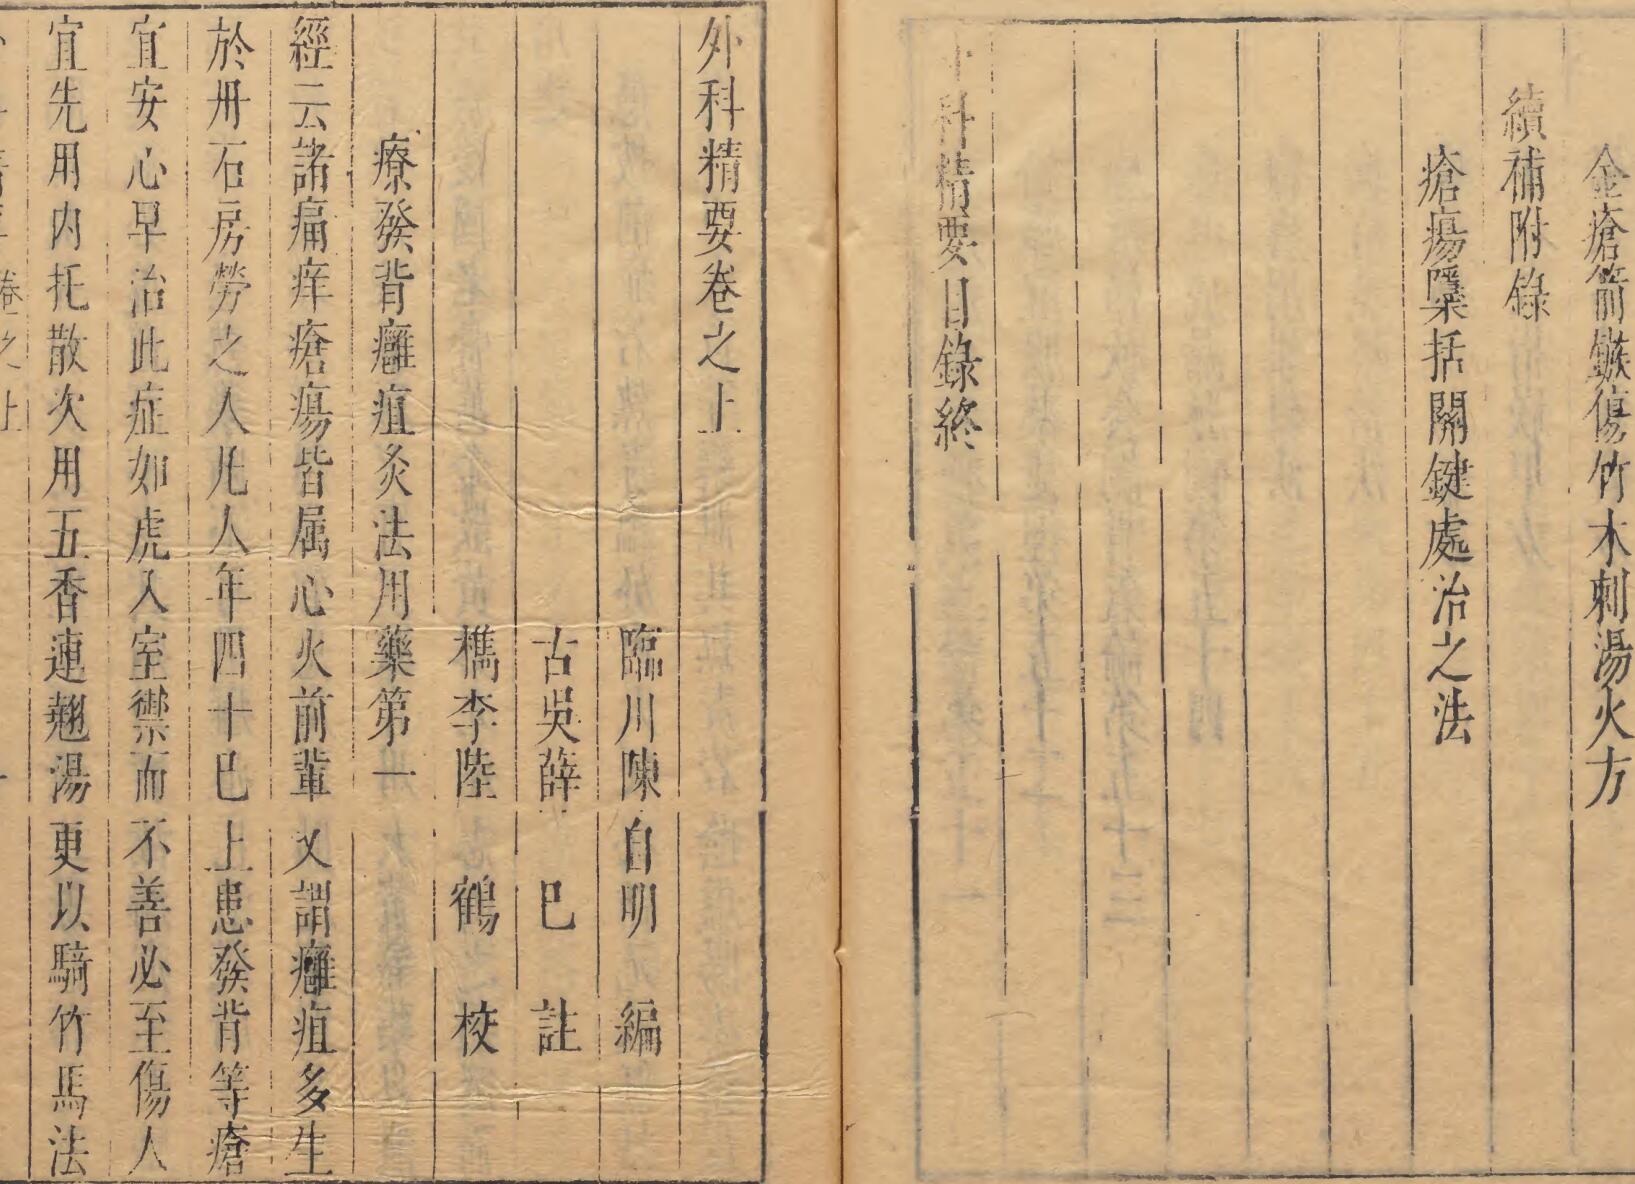 金瘡箭鏃傷竹木刺湯火方
續補附錄
瘡瘍隱括關鍵處治之法
科精要目錄終
外科精要卷之上
臨川陳自明編
古吳薛己註
檇李陸鶴校
療發背癰疽灸法用藥第一
經云諸痛痒瘡瘍皆屬心火前輩又謂癰疽多生
於丹石房勞之人凡人年四十已上患發背等瘡
宜安心早治此症如虎入室禦而不善必至傷人
宜先用內托散次用五香連翹湯更以騎竹馬法
卷之上